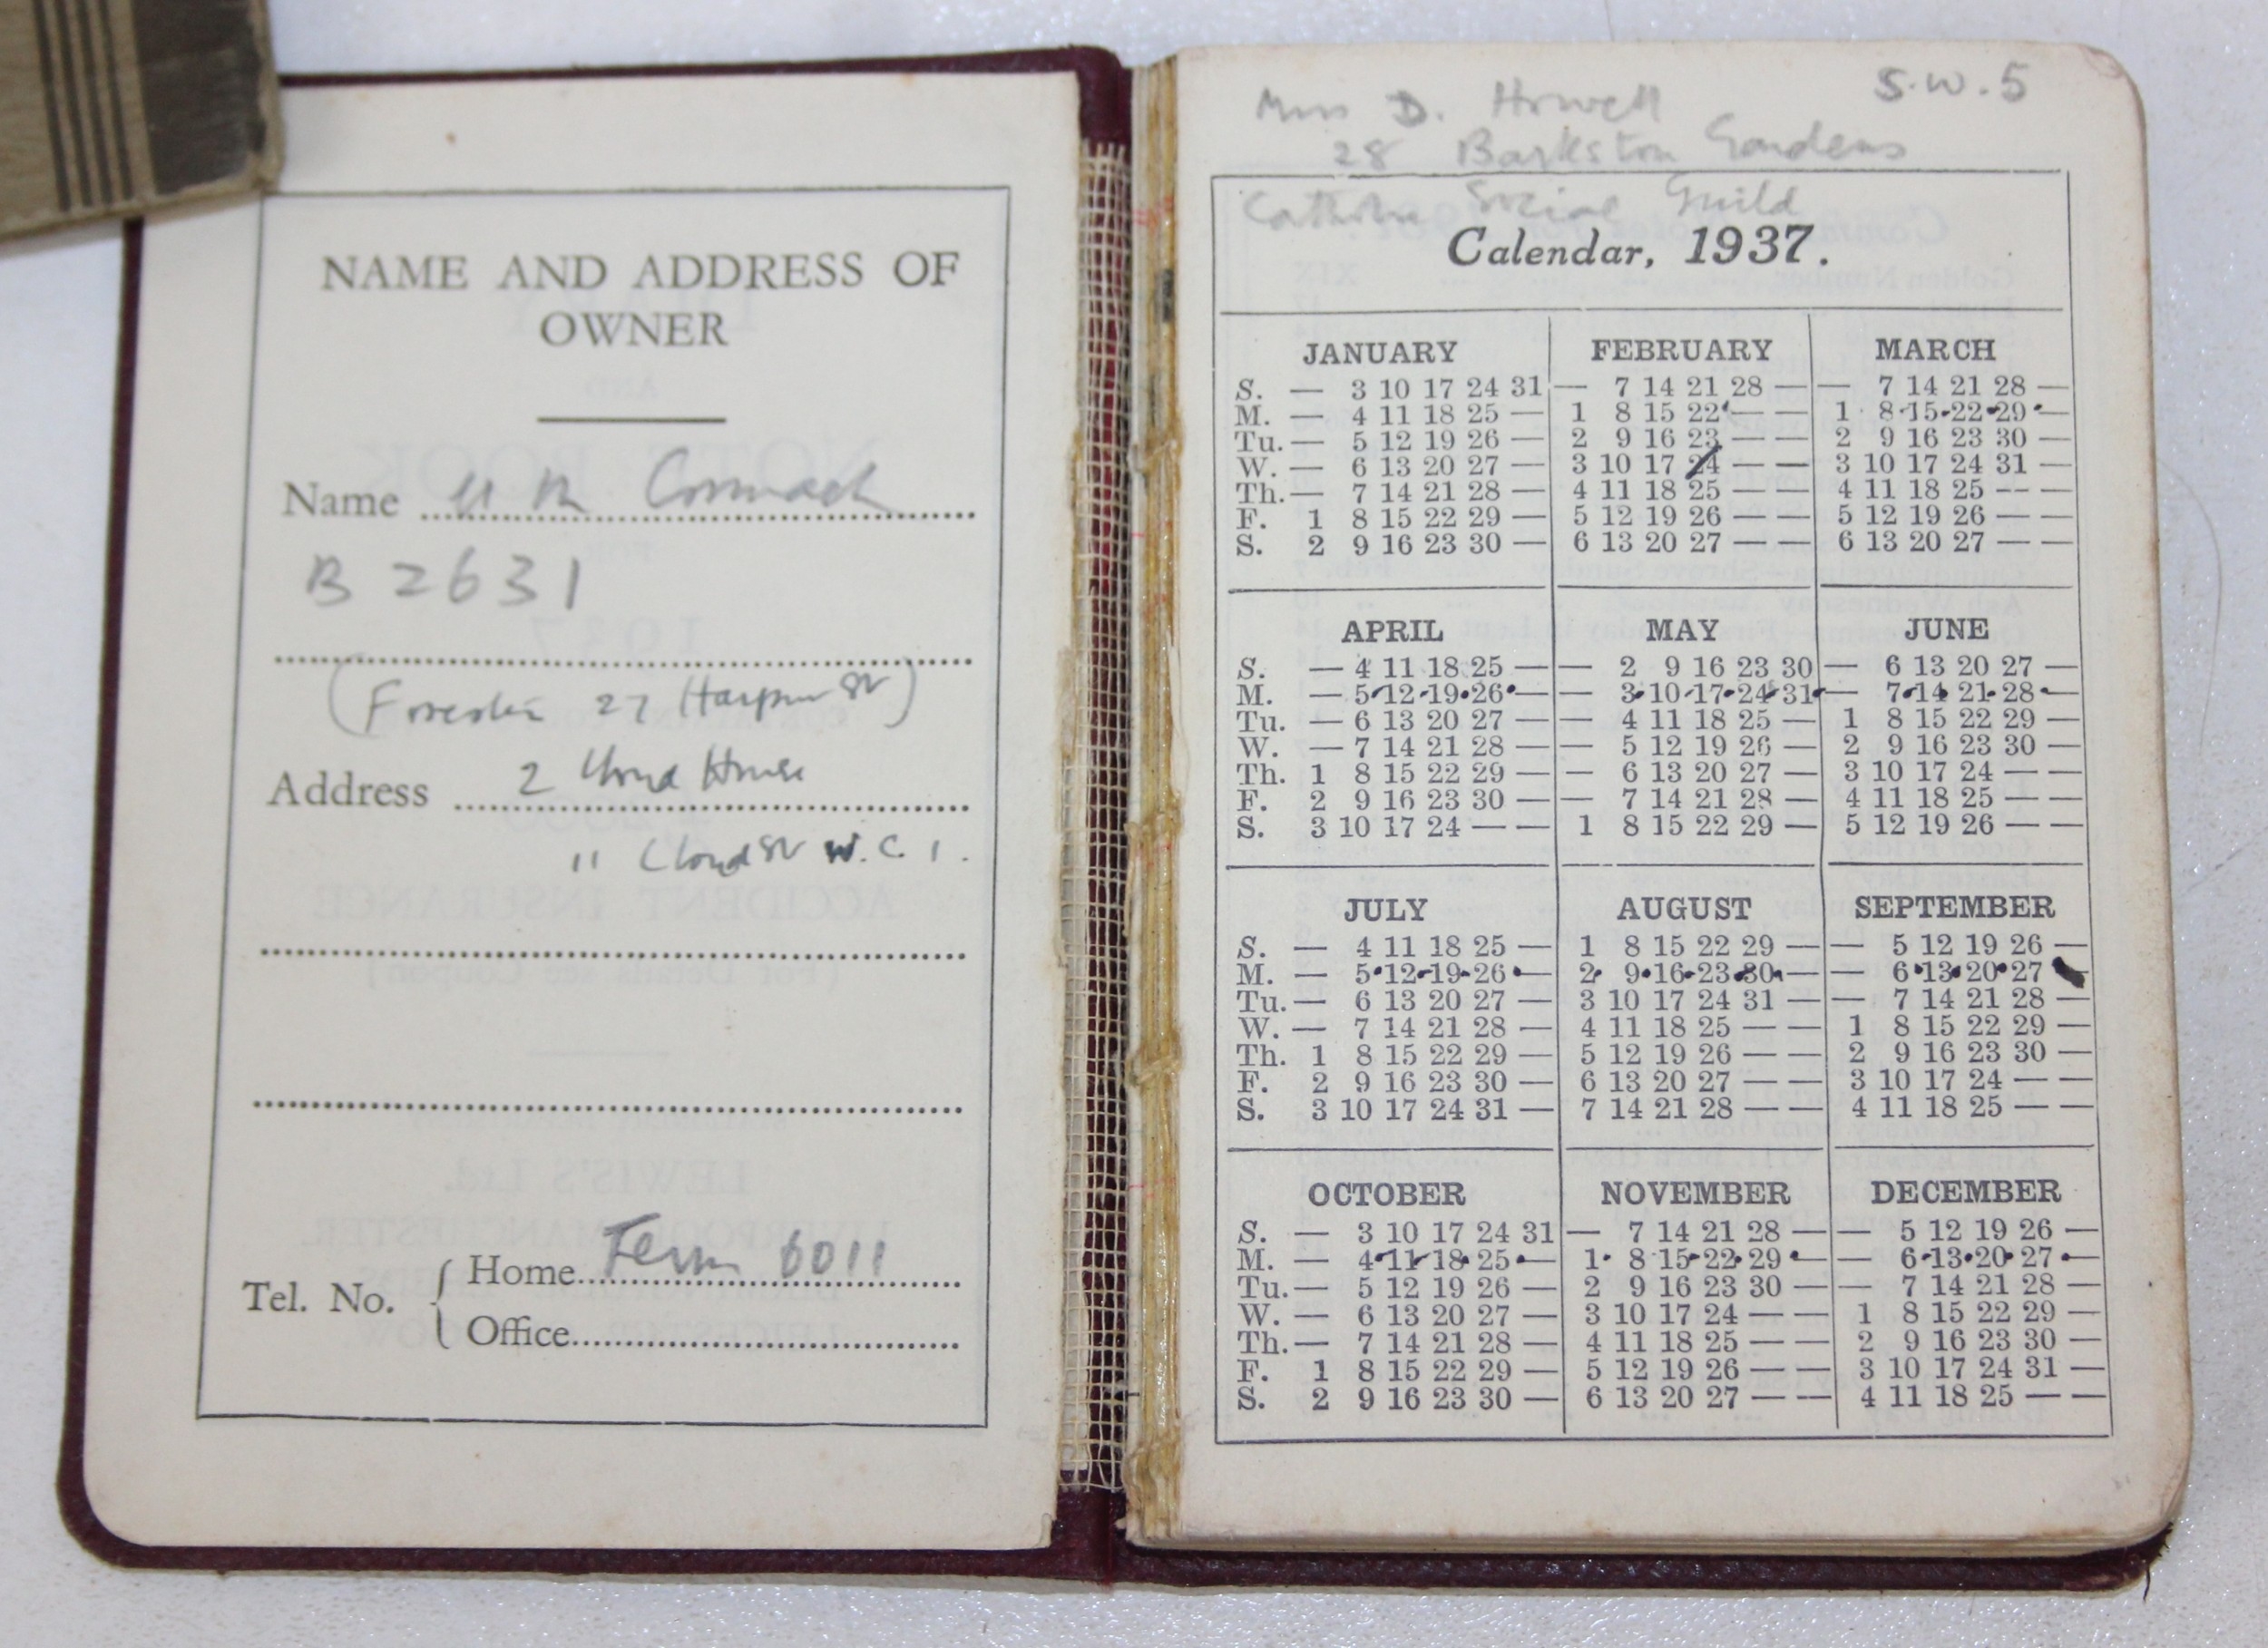 NAME AND ADDRESS OF
OWNER
Name Cormack
B 2631
27 Harpur St)
Address 2 House
11 St W.C.1.
Tel. No. { Home Term 6011
Office
Miss D. Howell S.W.5
28 Barkston Gardens
Catholic Social Guild
Calendar, 1937.
JANUARY FEBRUARY MARCH
S. — 3 10 17 24 31 — 7 14 21 28 — — 7 14 21 28 —
M. — 4 11 18 25 — 1 8 15 22 — — 1 8 15 22 29 —
Tu. — 5 12 19 26 — 2 9 16 23 — — 2 9 16 23 30 —
W. — 6 13 20 27 — 3 10 17 24 — — 3 10 17 24 31 —
Th. — 7 14 21 28 — 4 11 18 25 — — 4 11 18 25 — —
F. 1 8 15 22 29 — 5 12 19 26 — — 5 12 19 26 — —
S. 2 9 16 23 30 — 6 13 20 27 — — 6 13 20 27 — —
APRIL MAY JUNE
S. — 4 11 18 25 — — 2 9 16 23 30 — 6 13 20 27 —
M. — 5 12 19 26 — — 3 10 17 24 31 — 7 14 21 28 —
Tu. — 6 13 20 27 — — 4 11 18 25 — 1 8 15 22 29 —
W. — 7 14 21 28 — — 5 12 19 26 — 2 9 16 23 30 —
Th. 1 8 15 22 29 — — 6 13 20 27 — 3 10 17 24 — —
F. 2 9 16 23 30 — — 7 14 21 28 — 4 11 18 25 — —
S. 3 10 17 24 — — 1 8 15 22 29 — 5 12 19 26 — —
JULY AUGUST SEPTEMBER
S. — 4 11 18 25 — 1 8 15 22 29 — — 5 12 19 26 —
M. — 5 12 19 26 — 2 9 16 23 30 — — 6 13 20 27 —
Tu. — 6 13 20 27 — 3 10 17 24 31 — — 7 14 21 28 —
W. — 7 14 21 28 — 4 11 18 25 — — 1 8 15 22 29 —
Th. 1 8 15 22 29 — 5 12 19 26 — — 2 9 16 23 30 —
F. 2 9 16 23 30 — 6 13 20 27 — — 3 10 17 24 — —
S. 3 10 17 24 31 — 7 14 21 28 — — 4 11 18 25 — —
OCTOBER NOVEMBER DECEMBER
S. — 3 10 17 24 31 — 7 14 21 28 — — 5 12 19 26 —
M. — 4 11 18 25 — 1 8 15 22 29 — — 6 13 20 27 —
Tu. — 5 12 19 26 — 2 9 16 23 30 — — 7 14 21 28 —
W. — 6 13 20 27 — 3 10 17 24 — — 1 8 15 22 29 —
Th. — 7 14 21 28 — 4 11 18 25 — — 2 9 16 23 30 —
F. 1 8 15 22 29 — 5 12 19 26 — — 3 10 17 24 31 —
S. 2 9 16 23 30 — 6 13 20 27 — — 4 11 18 25 — —